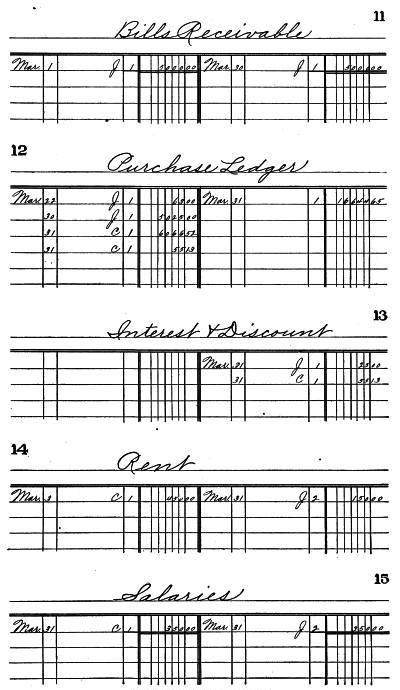 11
Bills Receivable
Mar. 1 J 1 5 0 0 0 0 0 Mar. 30 J 1 5 0 0 0 0 0
12
Purchase Ledger
Mar. 22 J 1 6 3 0 0 Mar. 31 1 1 6 6 4 4 6 5
30 J 1 5 0 2 5 0 0
31 C 1 6 0 6 6 5 2
31 C 1 5 5 1 3
13
Interest & Discount
Mar. 31 J 1 2 5 0 0
31 C 1 5 5 1 3
14
Rent
Mar. 3 C 1 4 5 0 0 0 Mar. 31 J 2 1 5 0 0 0
15
Salaries
Mar. 31 C 1 3 5 0 0 0 Mar. 31 J 2 3 5 0 0 0